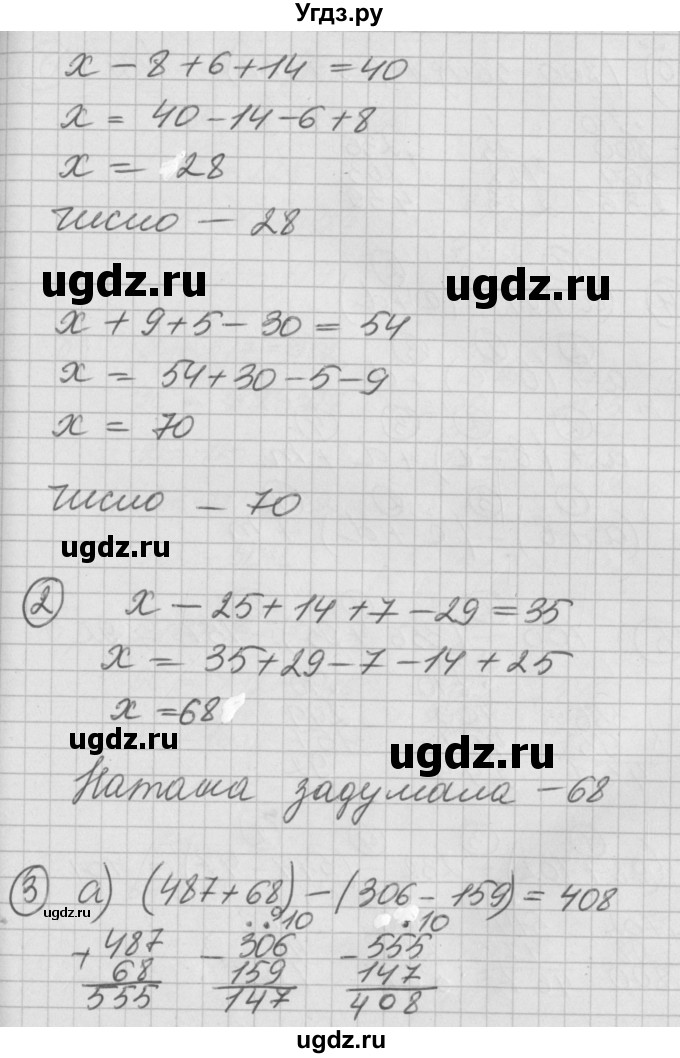 Угдз.ру
x - 8 + 6 + 14 = 40
x = 40 - 14 - 6 + 8
x = 28
число - 28
ugdz.ru ugdz.ru
x + 9 + 5 - 30 = 54
x = 54 + 30 - 5 - 9
x = 70
число - 70
ugdz.ru
2 x - 25 + 14 + 7 - 29 = 35
x = 35 + 29 - 7 - 14 + 25
x = 68
ugdz.ru ugdz.ru
Наташа задумала - 68
3 а) (487 + 68) - (306 - 159) = 408
ugdz.ru
9 10 10
+ 487 - 306 - 555
68 159 147
555 147 408
ugdz.ru